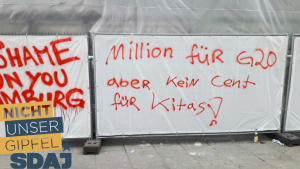 SHAME
ON YOU
HAMBURG
Million für G20
aber Kein Cent
für Kitas?
NICHT
UNSER
GIPFEL
SDAJ